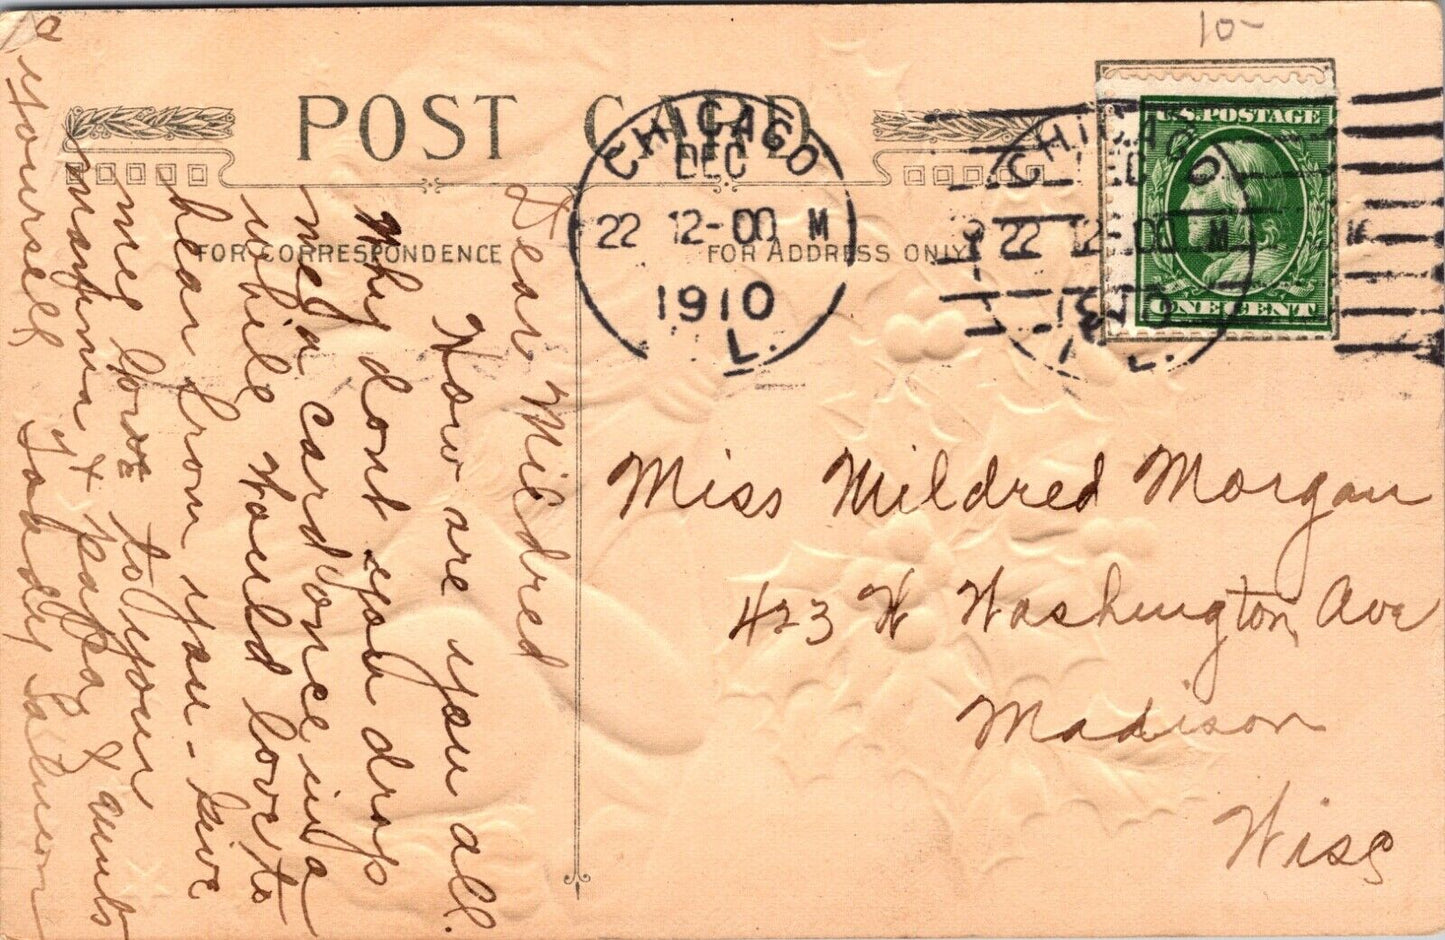 10-
POST CARD
CHICAGO
DEC
22 12-00 M
1910
L.
CHICAGO
DEC
22 12-00 M
L.
U.S. POSTAGE
ONE CENT
FOR CORRESPONDENCE
FOR ADDRESS ONLY
Dear Mildred
How are you all.
Why dont you drop
me a card once in a
while Would love to
hear from you - Give
my love to your
mamma & papa & aunts
& yourself
Miss Mildred Morgan
423 W Washington Ave
Madison
Wisc